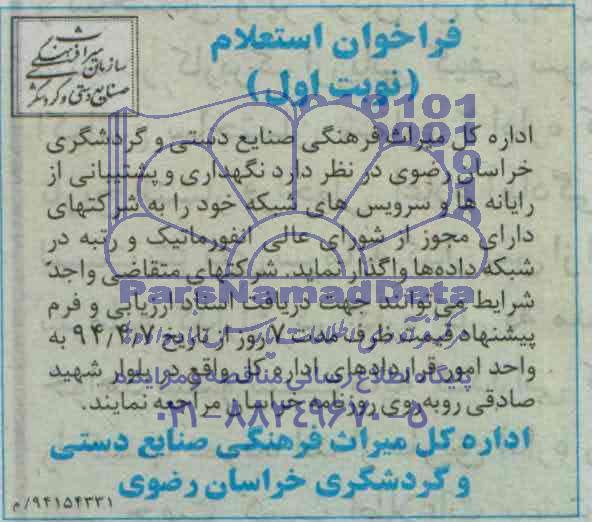 سازمان میراث فرهنگی
صنایع دستی و گردشگری
فراخوان استعلام
(نوبت اول)
اداره کل میراث فرهنگی صنایع دستی و گردشگری
خراسان رضوی در نظر دارد نگهداری و پشتیبانی از
رایانه ها و سرویس های شبکه خود را به شرکتهای
دارای مجوز از شورای عالی انفورماتیک و رتبه در
شبکه داده‌ها واگذار نماید. شرکتهای متقاضی واجد
ParsNamadData
شرایط می‌توانند جهت دریافت اسناد ارزیابی و فرم
پیشنهاد قیمت ظرف مدت ۷ روز از تاریخ ۹۴/۴/۷ به
واحد امور قراردادهای اداره کل واقع در بلوار شهید
پایگاه اطلاع رسانی مناقصه و مزایده
صادقی روبه‌روی روزنامه خراسان مراجعه نمایند.
۰۲۱-۸۸۳۴۹۶۷۰-۵
اداره کل میراث فرهنگی صنایع دستی
و گردشگری خراسان رضوی
۹۴۱۵۴۳۳۱/م